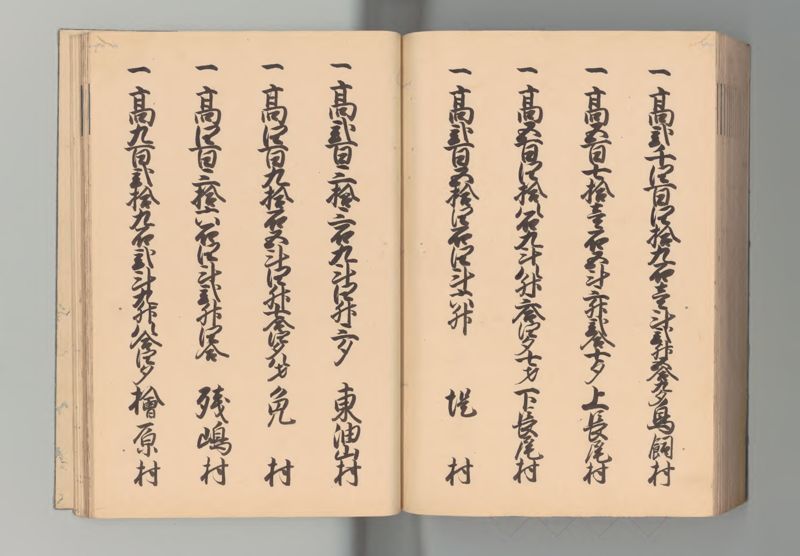 一 高弐千四百四拾九石壱斗弐升五合九夕 鳥飼村
一 高五百七拾壱石五斗三升弐合七夕 上長尾村
一 高五百四拾八石九斗八升三合四夕七才 下長尾村
一 高弐百五拾四石四斗六升 堤村
一 高弐百三拾三石九斗四升三夕 東油山村
一 高四百九拾石五斗四升壱合四夕八才 免村
一 高四百三拾六石四斗弐升四合 残嶋村
一 高九百弐拾九石弐斗九升八合四夕 檜原村